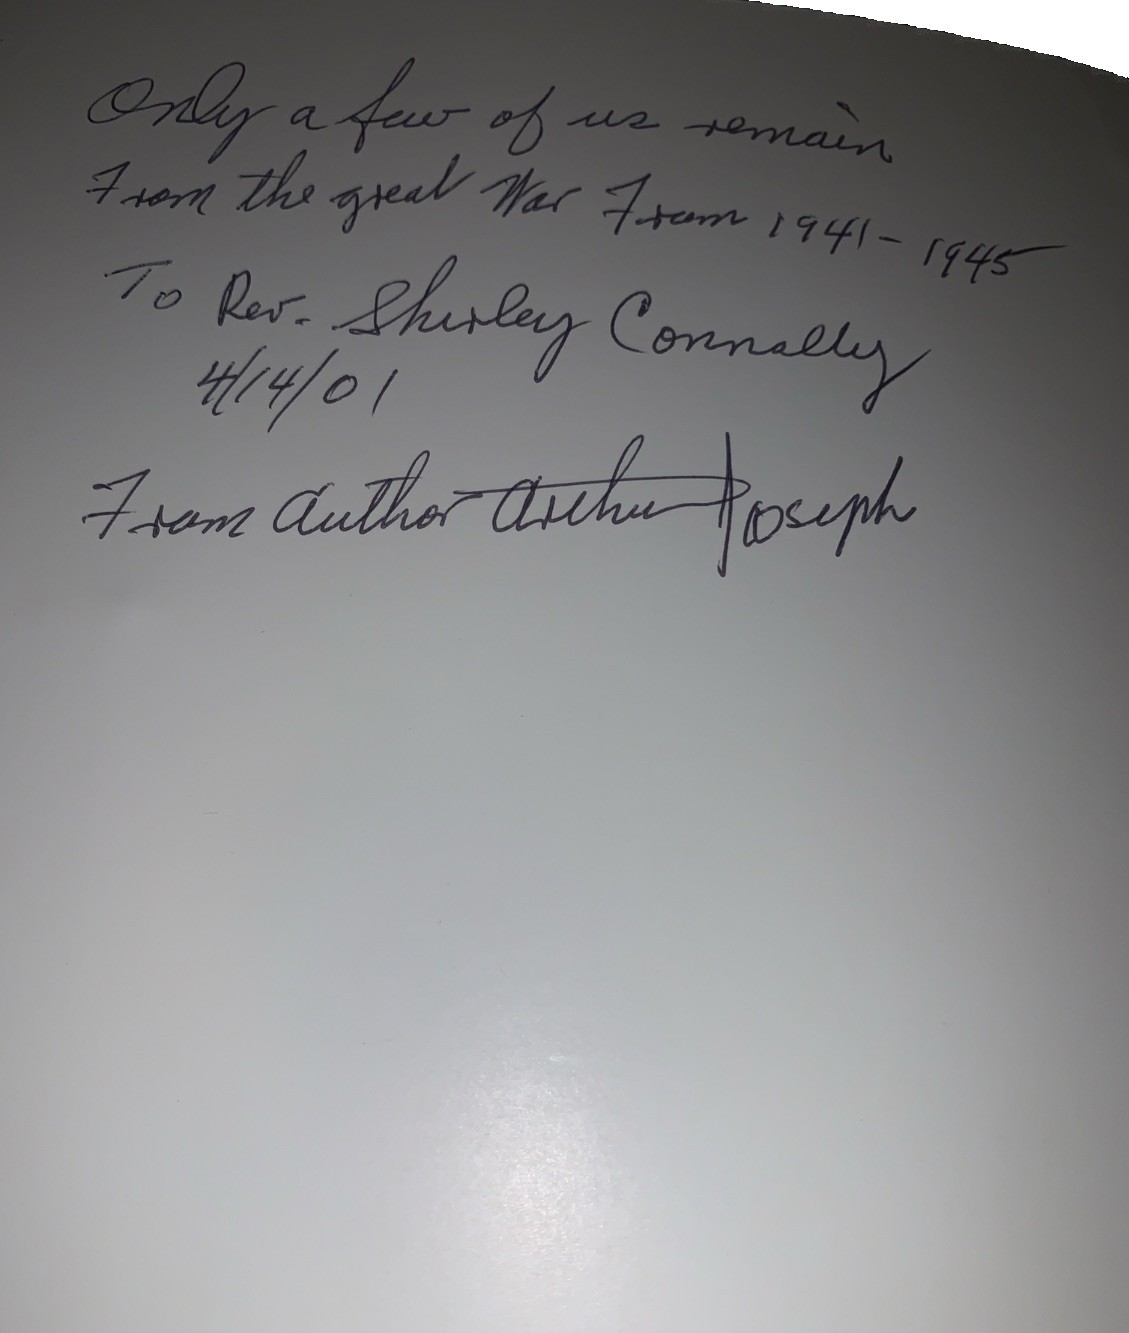 Only a few of us remain
From the great War From 1941-1945
To Rev. Shirley Connally
4/14/01
From Author Arthur Joseph